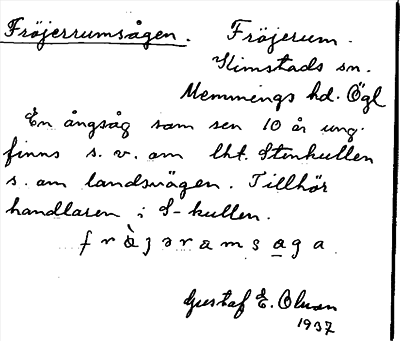 Fröjerrumsågen. Fröjerum.
Kimstads sn.
Memmings hd. Ögl
En ångsåg som sen 10 år ung.
finns s.v. om lht. Stenkullen
s. om landsvägen. Tillhör
handlaren i S-kullen.
frö̀jəramsaga
Gustaf E. Olsson
1937